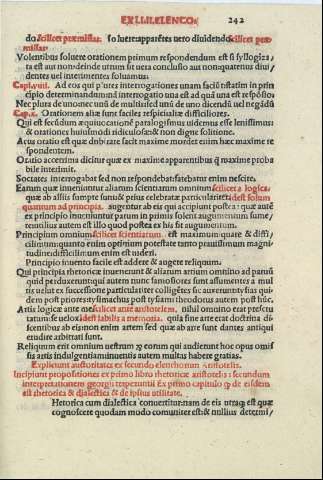 EX II. LI. ELENCO⁊ 242
do scilicet p̄missas. so luere apparẽtes uero diuidendo scilicet pre
missas.
Volentibus soluere orationem primum respondendum est si syllogiza
ta est aut non deinde utrum sit uera conclusio aut non quatenus diui/
dentes uel interimentes soluamus.
Cap. viii. Ad eos qui plures interrogationes unam faciũt restatim in prin
cipio determinandum nõ interrogatio una est ad quã una est respõsio
Nec plura de uno nec unũ de multis sed unũ de uno dicendũ uel negãdũ
Cap. x. Orationem aliæ sunt faciles respici aliæ difficiliores.
Qui est secũdum æquiuocationẽ paralogismus uidemus esse leuissimus
& orationes huiusmodi ridiculosæ & non digne solitione.
Actus oratio est quæ dubitare facit maxime mordet enim hæc maxime re
spondentem.
Oratio accerrima dicitur quæ ex maxime apparentibus q̃ maxime proba
bile interimit.
Socrates interrogabat sed non respondebat fatebatur enim nescire.
Earum quæ inueniuntur aliarum scientiarum omnium scilicet a logica
quæ ab aliis sumpte sunt & prius celebratæ particulariter idest solum
quantum ad principia. augentur ab eis qui accipiunt postea: quæ autẽ
ex principio inueniuntur parum in primis solent augumentum sume/
re utilius autem est illo quod postea ex his fit augumentum.
Principium omnium scilicet scientiarum est maximum quare & diffi/
cilimum: quanto enim optimum potestate tanto prauissimum magni
tudine difficilimum enim est uideri.
Principio inuento facile est addere & augere reliquum.
Qui principia rhetoricæ inuenerunt & aliarum artium omnino ad parum
quid perduxerunt qui autem nunc famosiores sunt assumentes a mul
tis uelut ex successione particulariter colligẽtes sic auxerunt: thysias qui
dem post priores thysimachus post tysiam theodorus autem post hũc.
Artis logicæ ante me scilicet ante aristotelem, nihil omnino erat prefectu
ratum: se uelox idest labilis a memoria. quia sine arte erat doctrina di/
scentibus ab eis non enim artem sed quæ ab arte sunt dantes antiqui
erudire arbitrati sunt.
Reliquum erit omnium uestrum ⁊ eorum qui audierunt hoc opus omis
sis artis indulgentiam inuentis autem multas habere gratias.
Expliciunt auctoritates ex secundo elenchorum Aristotelis.
Incipiunt propositiones ex primo libro rhetoricæ aristotelis: secundum
interpretationem georgii trapezuntii Ex primo capitulo q̃ de eisdem
est rhetorica & dialectica & de ipsius utilitate.
Rhetorica cum dialectica conuertitur: nam de eis utraq; est quæ
cognoscere quodam modo comuniter est: & nullius determi/